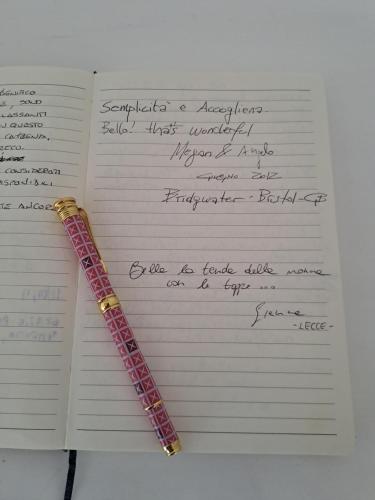 BENIFICO
E, SOLO
RLASSANTI
IN QUESTO
CATRENTA,
RECO.
CONSIDERATI
DISPONIBILI
TE ANCOR
Semplicità e Accoglienza.
Bello! that's wonderful
Megan & Angelo
GIUGNO 2012
Bridgwater - Bristol - GB
Bella la tenda della nonna
con le toppe ...
Gienne
- LECCE -